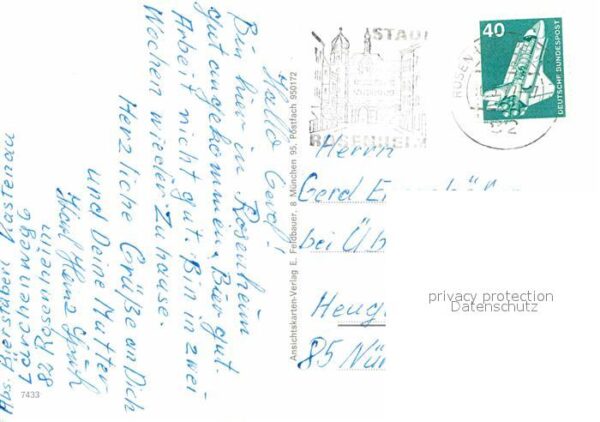 Hallo Gerd!
Bin hier in Rosenheim
gut angekommen. Bier gut.
Arbeit nicht gut. Bin in zwei
Wochen wieder Zuhause.
Herzliche Grüße an Dich
und Deine Mutter
Karl Heinz
Abs. Bierstüberl Kastenau
Lärchenweg 6
Rosenheim
7433
Ansichtskarten-Verlag E. Feldbauer, 8 München 95, Postfach 950172
STADT
ROSENHEIM
ROSENH
40
DEUTSCHE BUNDESPOST
Herrn
Gerd
bei Üb
Heug
85 Nür
privacy protection
Datenschutz